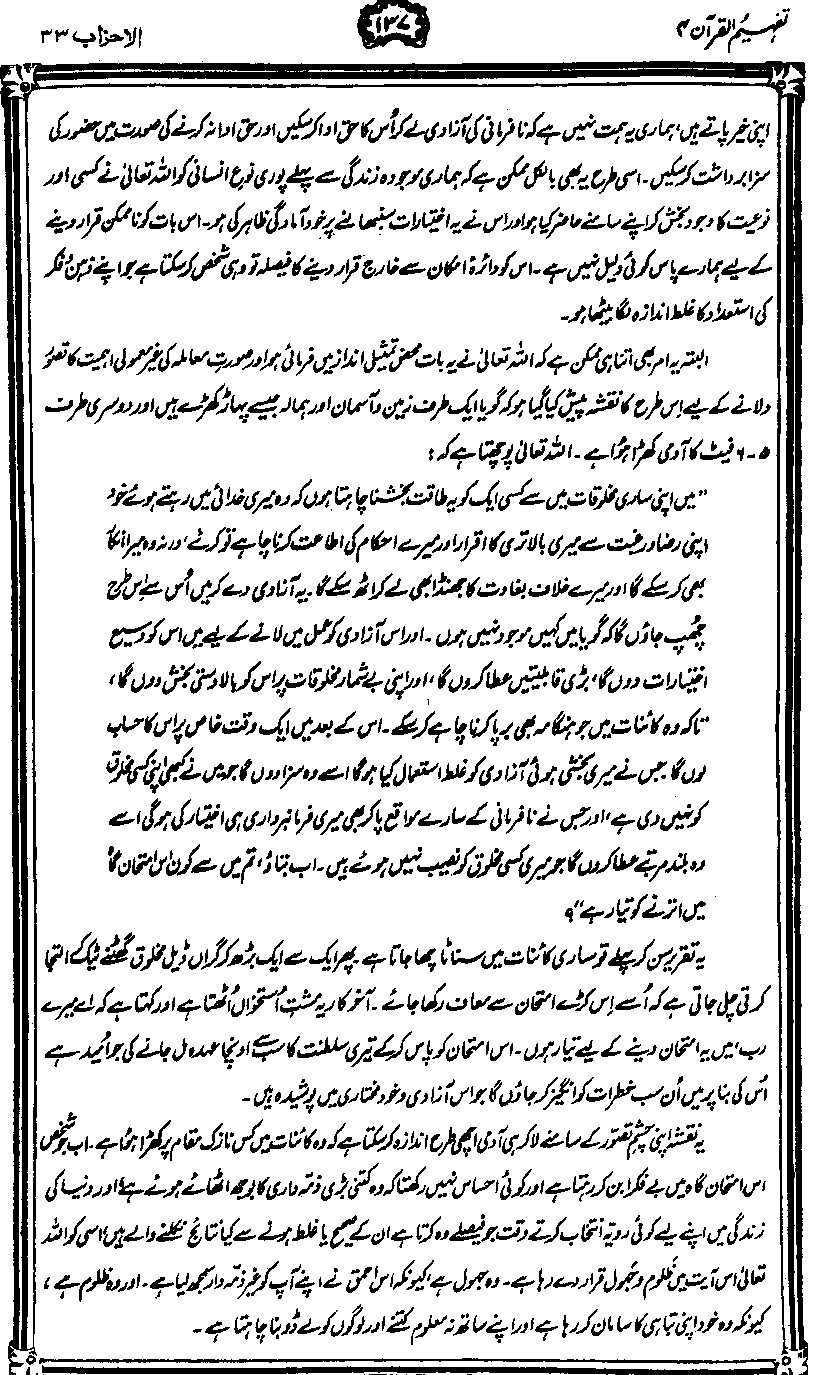 تفہیم القرآن ۴
۱۳۷
الاحزاب ۳۳
اپنی خیر پاتے ہیں، ہماری یہ ہمت نہیں ہے کہ نافرمانی کی آزادی لے کر اُس کا حق ادا کر سکیں اور حق ادا نہ کرنے کی صورت میں حضور کی
سزا برداشت کر سکیں۔ اسی طرح یہ بھی بالکل ممکن ہے کہ ہماری موجودہ زندگی سے پہلے پوری نوع انسانی کو اللہ تعالیٰ نے کسی اور
نوعیت کا وجود بخش کر اپنے سامنے حاضر کیا ہو اور اس نے یہ اختیارات سنبھالنے پر خود آمادگی ظاہر کی ہو۔ اس بات کو ناممکن قرار دینے
کے لیے ہمارے پاس کوئی دلیل نہیں ہے۔ اس کو دائرۂ امکان سے خارج قرار دینے کا فیصلہ تو وہی شخص کر سکتا ہے جو اپنے ذہن و فکر
کی استعداد کا غلط اندازہ لگا بیٹھا ہو۔
البتہ یہ امر بھی اتنا ہی ممکن ہے کہ اللہ تعالیٰ نے یہ بات محض تمثیلی انداز میں فرمائی ہو اور صورتِ معاملہ کی غیر معمولی اہمیت کا تصوّر
دلانے کے لیے اِس طرح کا نقشہ پیش کیا گیا ہو کہ گویا ایک طرف زمین و آسمان اور ہمالہ جیسے پہاڑ کھڑے ہیں اور دوسری طرف
۵-۶ فیٹ کا آدمی کھڑا ہوُا ہے۔ اللہ تعالیٰ پوچھتا ہے کہ:
"میں اپنی ساری مخلوقات میں سے کسی ایک کو یہ طاقت بخشنا چاہتا ہوں کہ وہ میری خدائی میں رہتے ہوئے خود
اپنی رضا و رغبت سے میری بالاتری کا اقرار اور میرے احکام کی اطاعت کرنا چاہے تو کرے، ورنہ وہ میرا انکار
بھی کر سکے گا اور میرے خلاف بغاوت کا جھنڈا بھی لے کر اٹھ سکے گا۔ یہ آزادی دے کر میں اُس سے اِس طرح
چھُپ جاؤں گا کہ گویا میں کہیں موجود نہیں ہوں۔ اور اس آزادی کو عمل میں لانے کے لیے میں اس کو وسیع
اختیارات دوں گا، بڑی قابلیتیں عطا کروں گا، اور اپنی بے شمار مخلوقات پر اس کو بالادستی بخش دوں گا،
تاکہ وہ کائنات میں جو ہنگامہ بھی برپا کرنا چاہے کر سکے۔ اس کے بعد میں ایک وقت خاص پر اس کا حساب
لوں گا۔ جس نے میری بخشی ہوئی آزادی کو غلط استعمال کیا ہو گا اسے وہ سزا دوں گا جو میں نے کبھی اپنی کسی مخلوق
کو نہیں دی ہے، اور جس نے نافرمانی کے سارے مواقع پا کر بھی میری فرمانبرداری ہی اختیار کی ہو گی اسے
وہ بلند مرتبے عطا کروں گا جو میری کسی مخلوق کو نصیب نہیں ہوئے ہیں۔ اب بتاؤ، تم میں سے کون اس امتحان گاہ
میں اترنے کو تیار ہے"؟
یہ تقریر سن کر پہلے تو ساری کائنات میں سناٹا چھا جاتا ہے۔ پھر ایک سے ایک بڑھ کر گراں ڈیل مخلوق گھٹنے ٹیک کے التجا
کرتی چلی جاتی ہے کہ اُسے اِس کڑے امتحان سے معاف رکھا جائے۔ آخر کار یہ مشتِ اُستخواں اُٹھتا ہے اور کہتا ہے کہ اے میرے
رب، میں یہ امتحان دینے کے لیے تیار ہوں۔ اس امتحان کو پاس کر کے تیری سلطنت کا سب سے اونچا عہدہ مل جانے کی جو امُید ہے
اُس کی بنا پر میں اُن سب خطرات کو انگیز کر جاؤں گا جو اس آزادی و خود مختاری میں پوشیدہ ہیں۔
یہ نقشہ اپنی چشمِ تصوّر کے سامنے لا کر ہی آدمی اچھی طرح اندازہ کر سکتا ہے کہ وہ کائنات میں کس نازک مقام پر کھڑا ہوُا ہے۔ اب جو شخص
اس امتحان گاہ میں بے فکرا بن کر رہتا ہے اور کوئی احساس نہیں رکھتا کہ وہ کتنی بڑی ذمّہ داری کا بوجھ اٹھائے ہوئے ہے، اور دنیا کی
زندگی میں اپنے لیے کوئی رویّہ انتخاب کرتے وقت جو فیصلے وہ کرتا ہے ان کے صحیح یا غلط ہونے سے کیا نتائج نکلنے والے ہیں، اسی کو اللہ
تعالیٰ اس آیت میں ظلوم و جہول قرار دے رہا ہے۔ وہ جہول ہے، کیونکہ اس احمق نے اپنے آپ کو غیر ذمّہ دار سمجھ لیا ہے۔ اور وہ ظلوم ہے،
کیونکہ وہ خود اپنی تباہی کا سامان کر رہا ہے اور اپنے ساتھ نہ معلوم کتنے اور لوگوں کو لے ڈوبنا چاہتا ہے۔